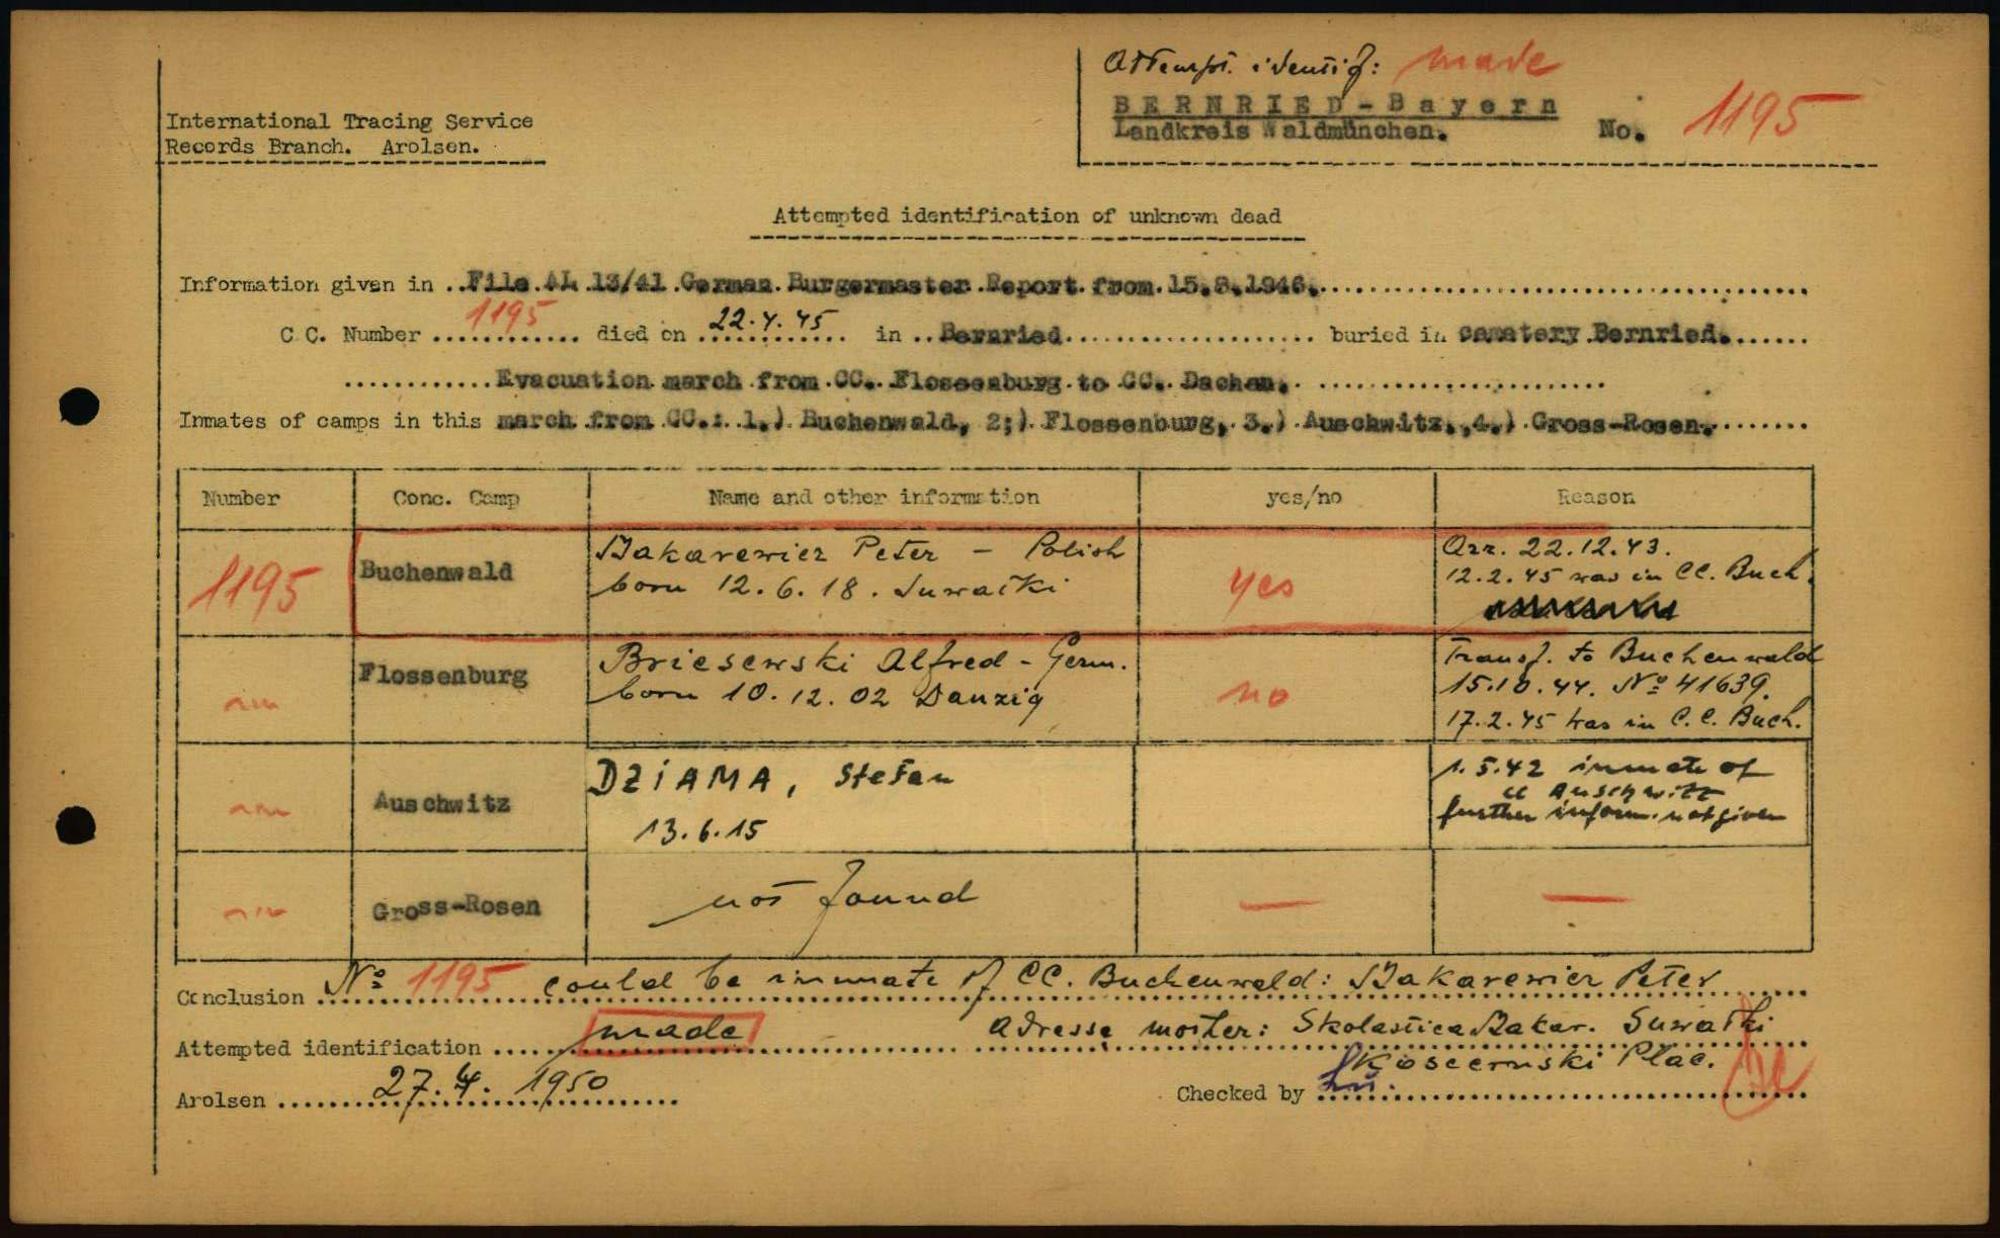 Attempt. identif: made
BERNRIED-Bayern
Landkreis Waldmünchen. No. 1195
International Tracing Service
Records Branch. Arolsen.
Attempted identification of unknown dead
Information given in ..File AL 13/41 German Burgermaster Report from 15.8.1946.
C.C. Number 1195 died on 22.4.45 in ..Bernried buried in cematery Bernried.
Evacuation march from CC. Flossenburg to CC. Dachau.
Inmates of camps in this march from CC.: 1.) Buchenwald, 2;) Flossenburg, 3.) Auschwitz.,4.) Gross-Rosen.
Number Conc. Camp Name and other information yes/no Reason
1195 Buchenwald Bakarewicz Peter - Polish
born 12.6.18. Suwałki
yes
Arr. 22.12.43.
12.2.45 was in CC. Buch.
Flossenburg Briesewski Alfred - Germ.
born 10.12.02 Danzig
no
Transf. to Buchenwald
15.10.44. No 41639.
17.2.45 was in C.C. Buch.
Auschwitz DZIAMA, Stefan
13.6.15
1.5.42 inmate of
CC Auschwitz
further inform. not given
Gross-Rosen not found — —
Conclusion No 1195 could be inmate of CC. Buchenwald: Bakarewicz Peter
Attempted identification made Adresse mother: Skolastica Bakar. Suwałki
Plac.
Arolsen 27.4.1950
Checked by